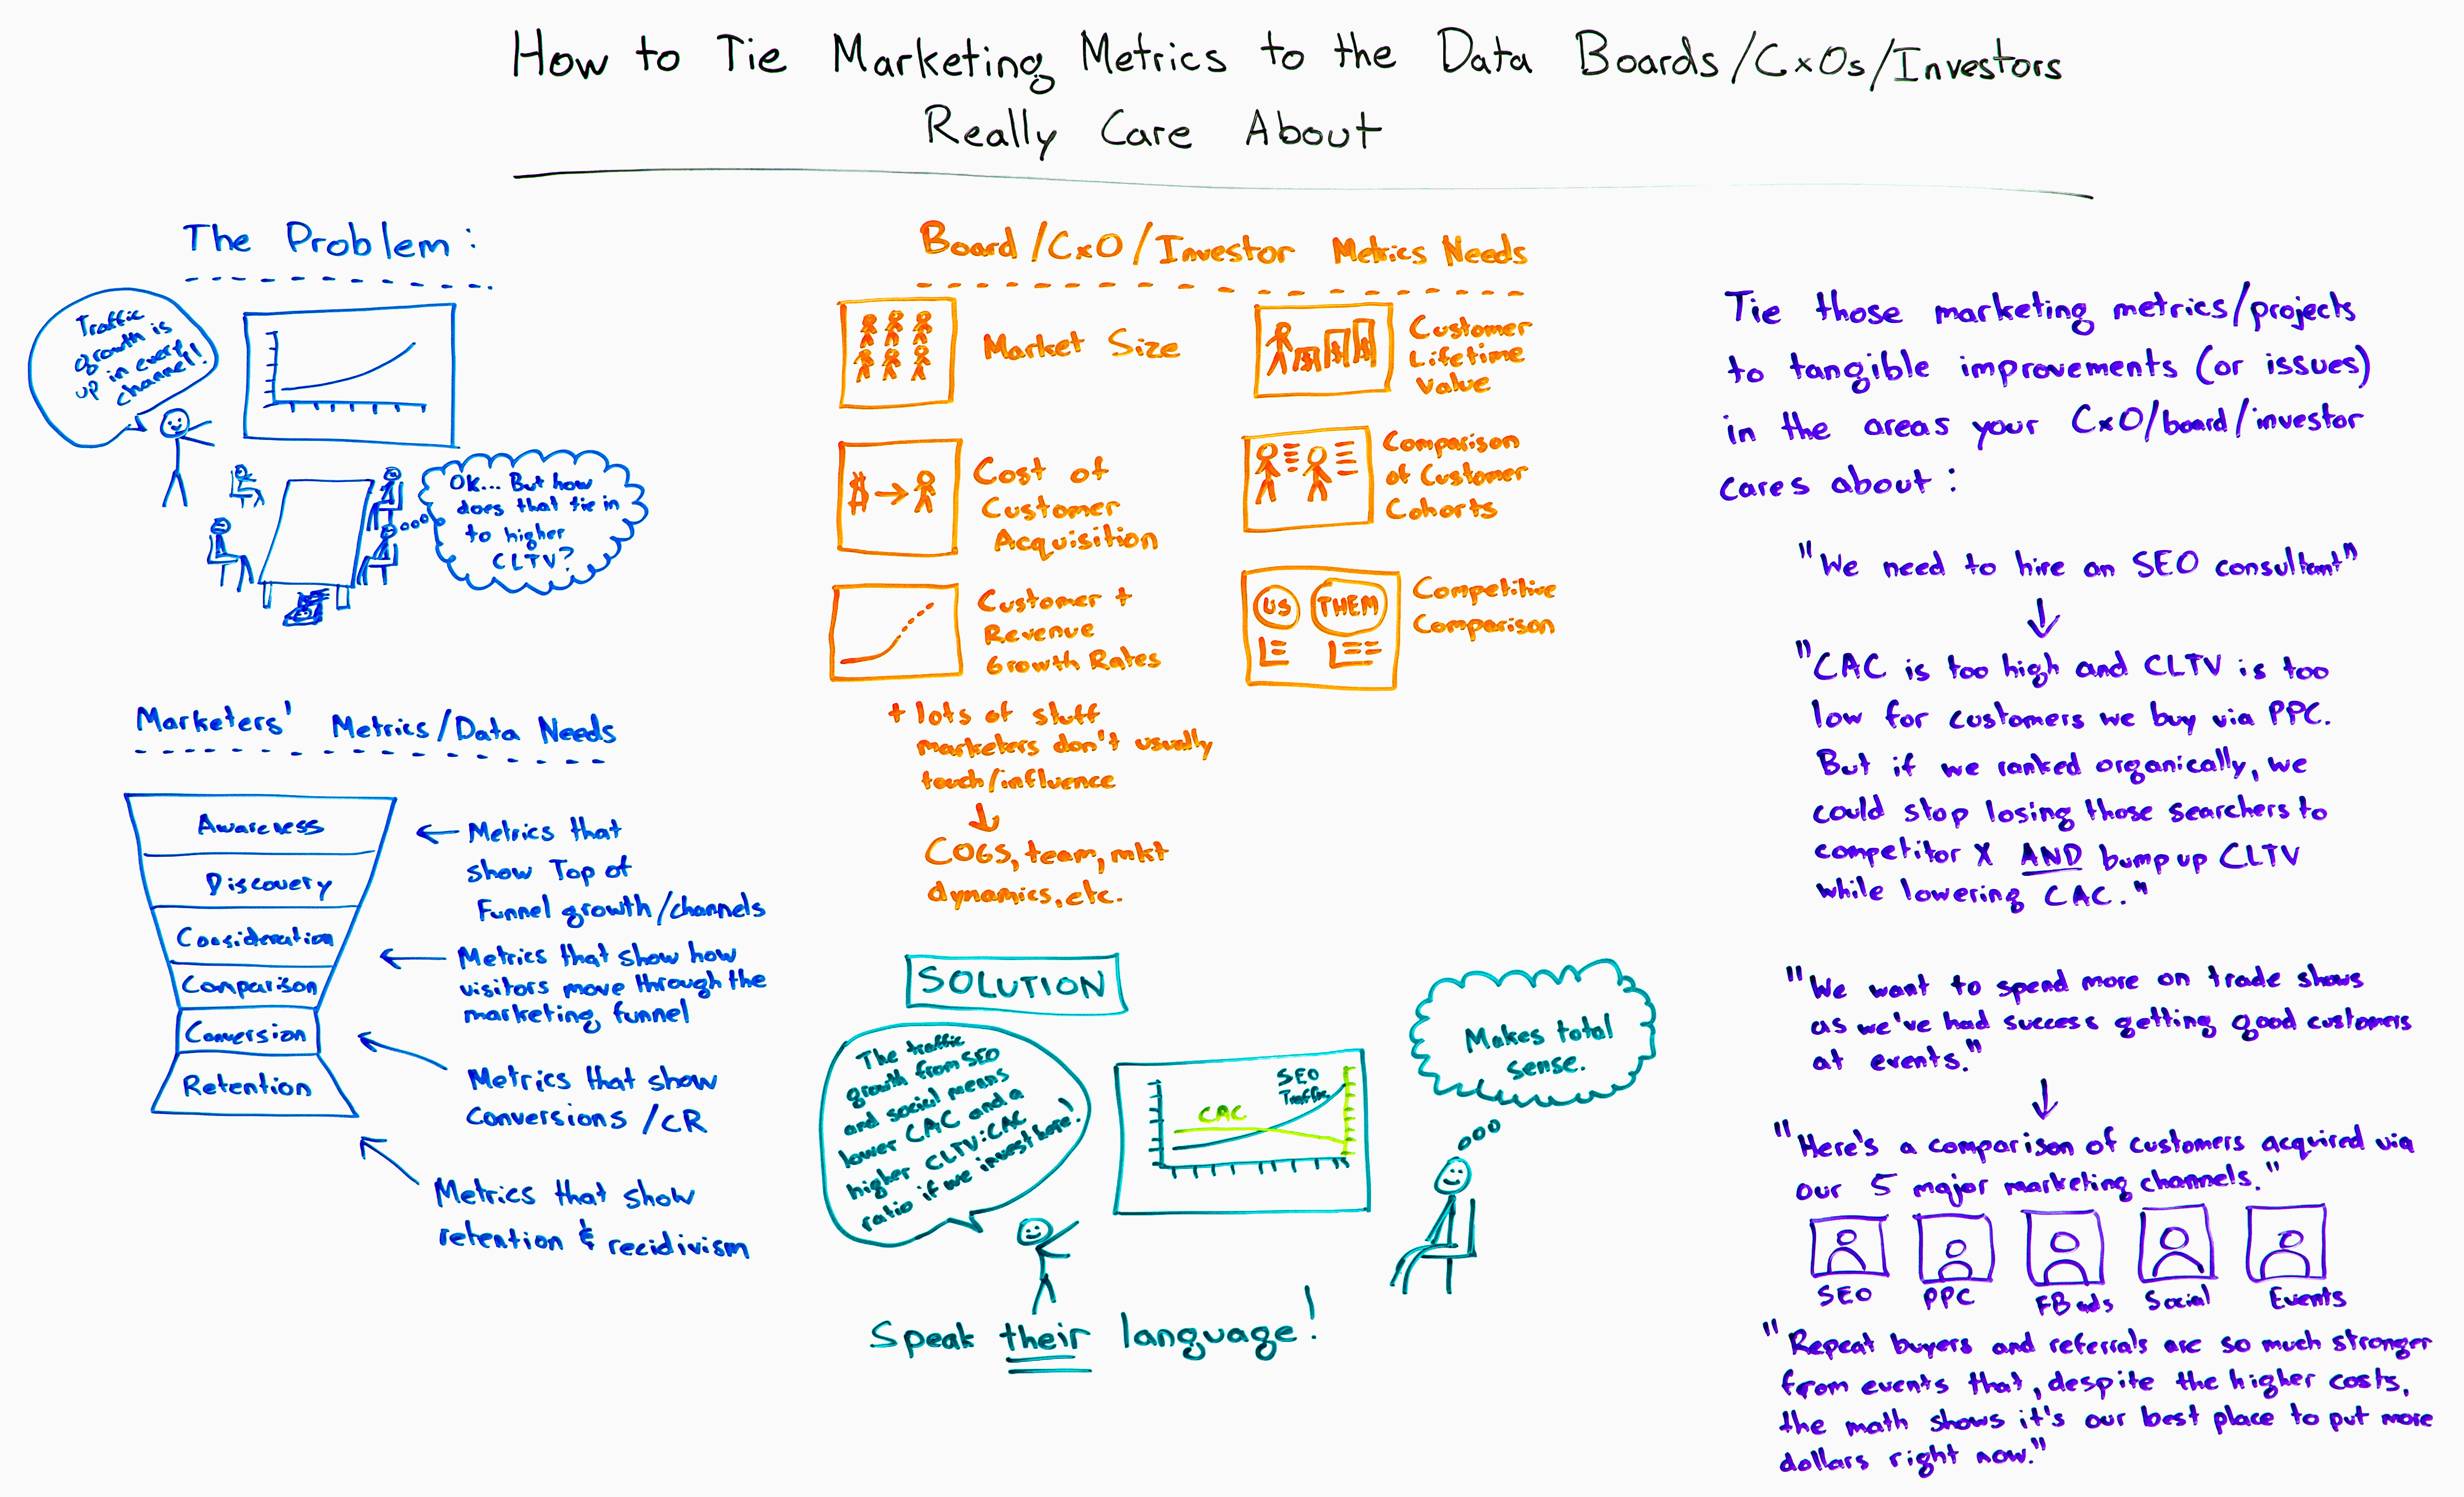 How to Tie Marketing Metrics to the Data Boards/CxOs/Investors
Really Care About
The Problem:
Traffic
growth is
up in every
channel!!
Ok... But how
does that tie in
to higher
CLTV?
Marketers' Metrics/Data Needs
Awareness
Discovery
Consideration
Comparison
Conversion
Retention
Metrics that
show Top of
Funnel growth/channels
Metrics that show how
visitors move through the
marketing funnel
Metrics that show
conversions/CR
Metrics that show
retention & recidivism
Board/CxO/Investor Metrics Needs
Market Size
Customer
Lifetime
Value
$
Cost of
Customer
Acquisition
Comparison
of Customer
Cohorts
Customer +
Revenue
Growth Rates
US
THEM
Competitive
Comparison
+ lots of stuff
marketers don't usually
touch/influence
COGS, team, mkt
dynamics, etc.
SOLUTION
The traffic
growth from SEO
and social means
lower CAC and a
higher CLTV:CAC
ratio if we invest here!
CAC
SEO
Traffic
Makes total
sense.
Speak their language!
Tie those marketing metrics/projects
to tangible improvements (or issues)
in the areas your CxO/board/investor
cares about:
"We need to hire an SEO consultant"
"CAC is too high and CLTV is too
low for customers we buy via PPC.
But if we ranked organically, we
could stop losing those searchers to
competitor X AND bump up CLTV
while lowering CAC."
"We want to spend more on trade shows
as we've had success getting good customers
at events."
"Here's a comparison of customers acquired via
our 5 major marketing channels."
SEO
PPC
FB ads
Social
Events
"Repeat buyers and referrals are so much stronger
from events that, despite the higher costs,
the math shows it's our best place to put more
dollars right now."